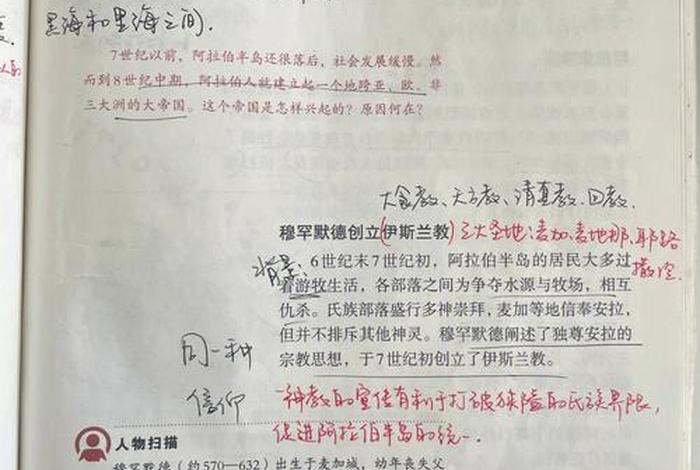 黑海和里海之间.
7世纪以前，阿拉伯半岛还很落后，社会发展缓慢。然
而到8世纪中期，阿拉伯人就建立起一个地跨亚、欧、非
三大洲的大帝国。这个帝国是怎样兴起的？原因何在？
大食教、天方教、清真教、回教.
穆罕默德创立(伊斯兰教) 三大圣地:麦加、麦地那、耶路
撒冷
背景: 6世纪末7世纪初，阿拉伯半岛的居民大多过
着游牧生活，各部落之间为争夺水源与牧场，相互
仇杀。氏族部落盛行多神崇拜，麦加等地信奉安拉，
但并不排斥其他神灵。穆罕默德阐述了独尊安拉的
宗教思想，于7世纪初创立了伊斯兰教。
同一种
信仰
一神教的宣传有利于打破狭隘的氏族界限，
促进阿拉伯半岛的统一.
人物扫描
穆罕默德（约570—632）出生于麦加城，幼年丧失父